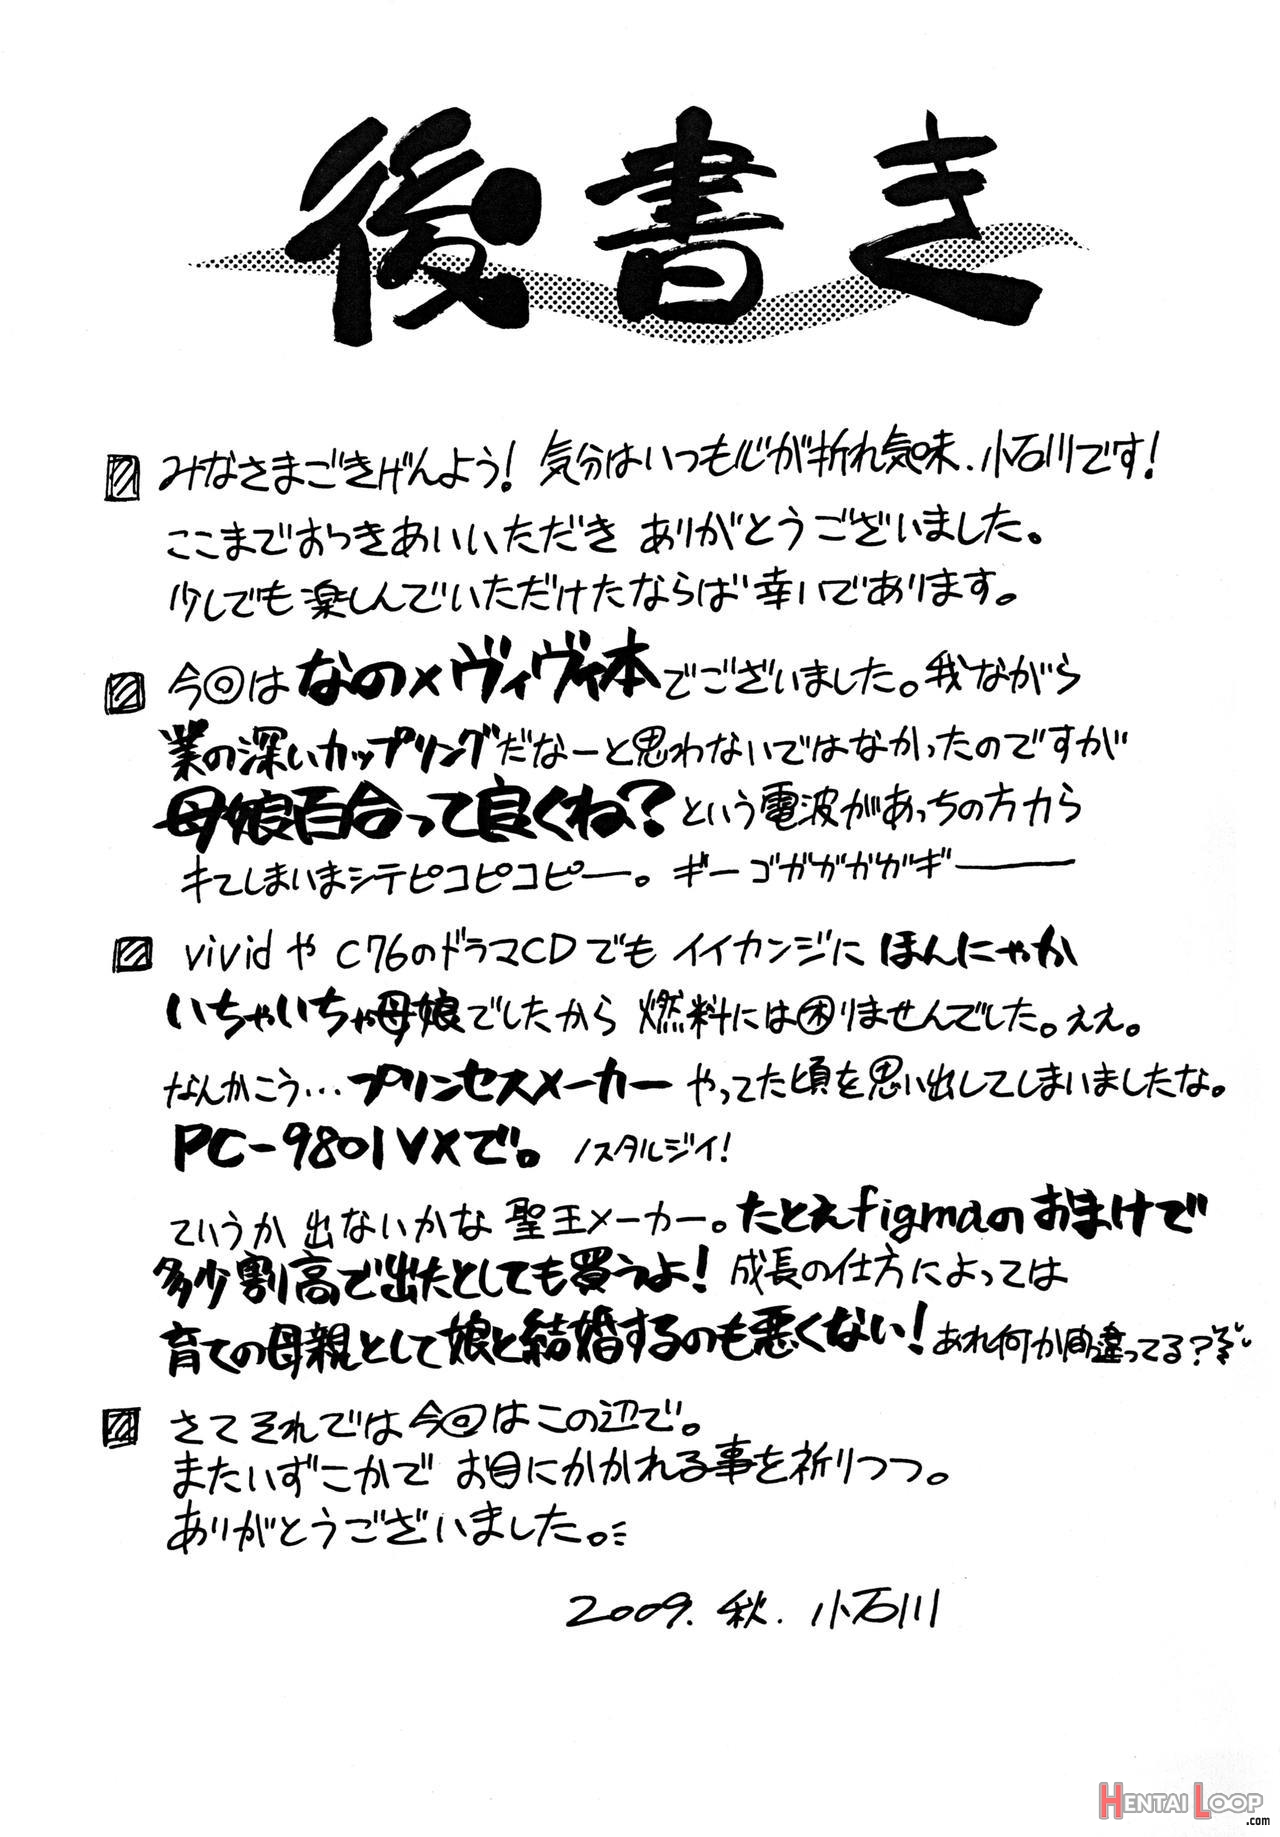 後書き
みなさまごきげんよう! 気分はいつも心が折れ気味、小石川です!
ここまでおつきあいいただき ありがとうございました。
少しでも楽しんでいただけたならば幸いであります。
今回は なの×ヴィヴィ本でございました。我ながら
業の深いカップリングだなーと思わないではなかったのですが
母娘百合って良くね?という電波があっちの方カら
キてしまいまシテピコピコピー。ギーゴガガガガギー
vividやC76のドラマCDでもイイカンジにほんにゃか
いちゃいちゃ母娘でしたから 燃料には困りませんでした。ええ。
なんかこう…プリンセスメーカーやってた頃を思い出してしまいましたな。
PC-9801VXで。ノスタルジイ!
ていうか 出ないかな 聖王メーカー。たとえfigmaのおまけで
多少割高で出たとしても買うよ! 成長の仕方によっては
育ての母親として娘と結婚するのも悪くない! あれ何か間違ってる?
さてそれでは今回はこの辺で。
またいずこかで お目にかかれる事を祈りつつ。
ありがとうございました。
2009. 秋. 小石川
HENTAI LOOP
.com